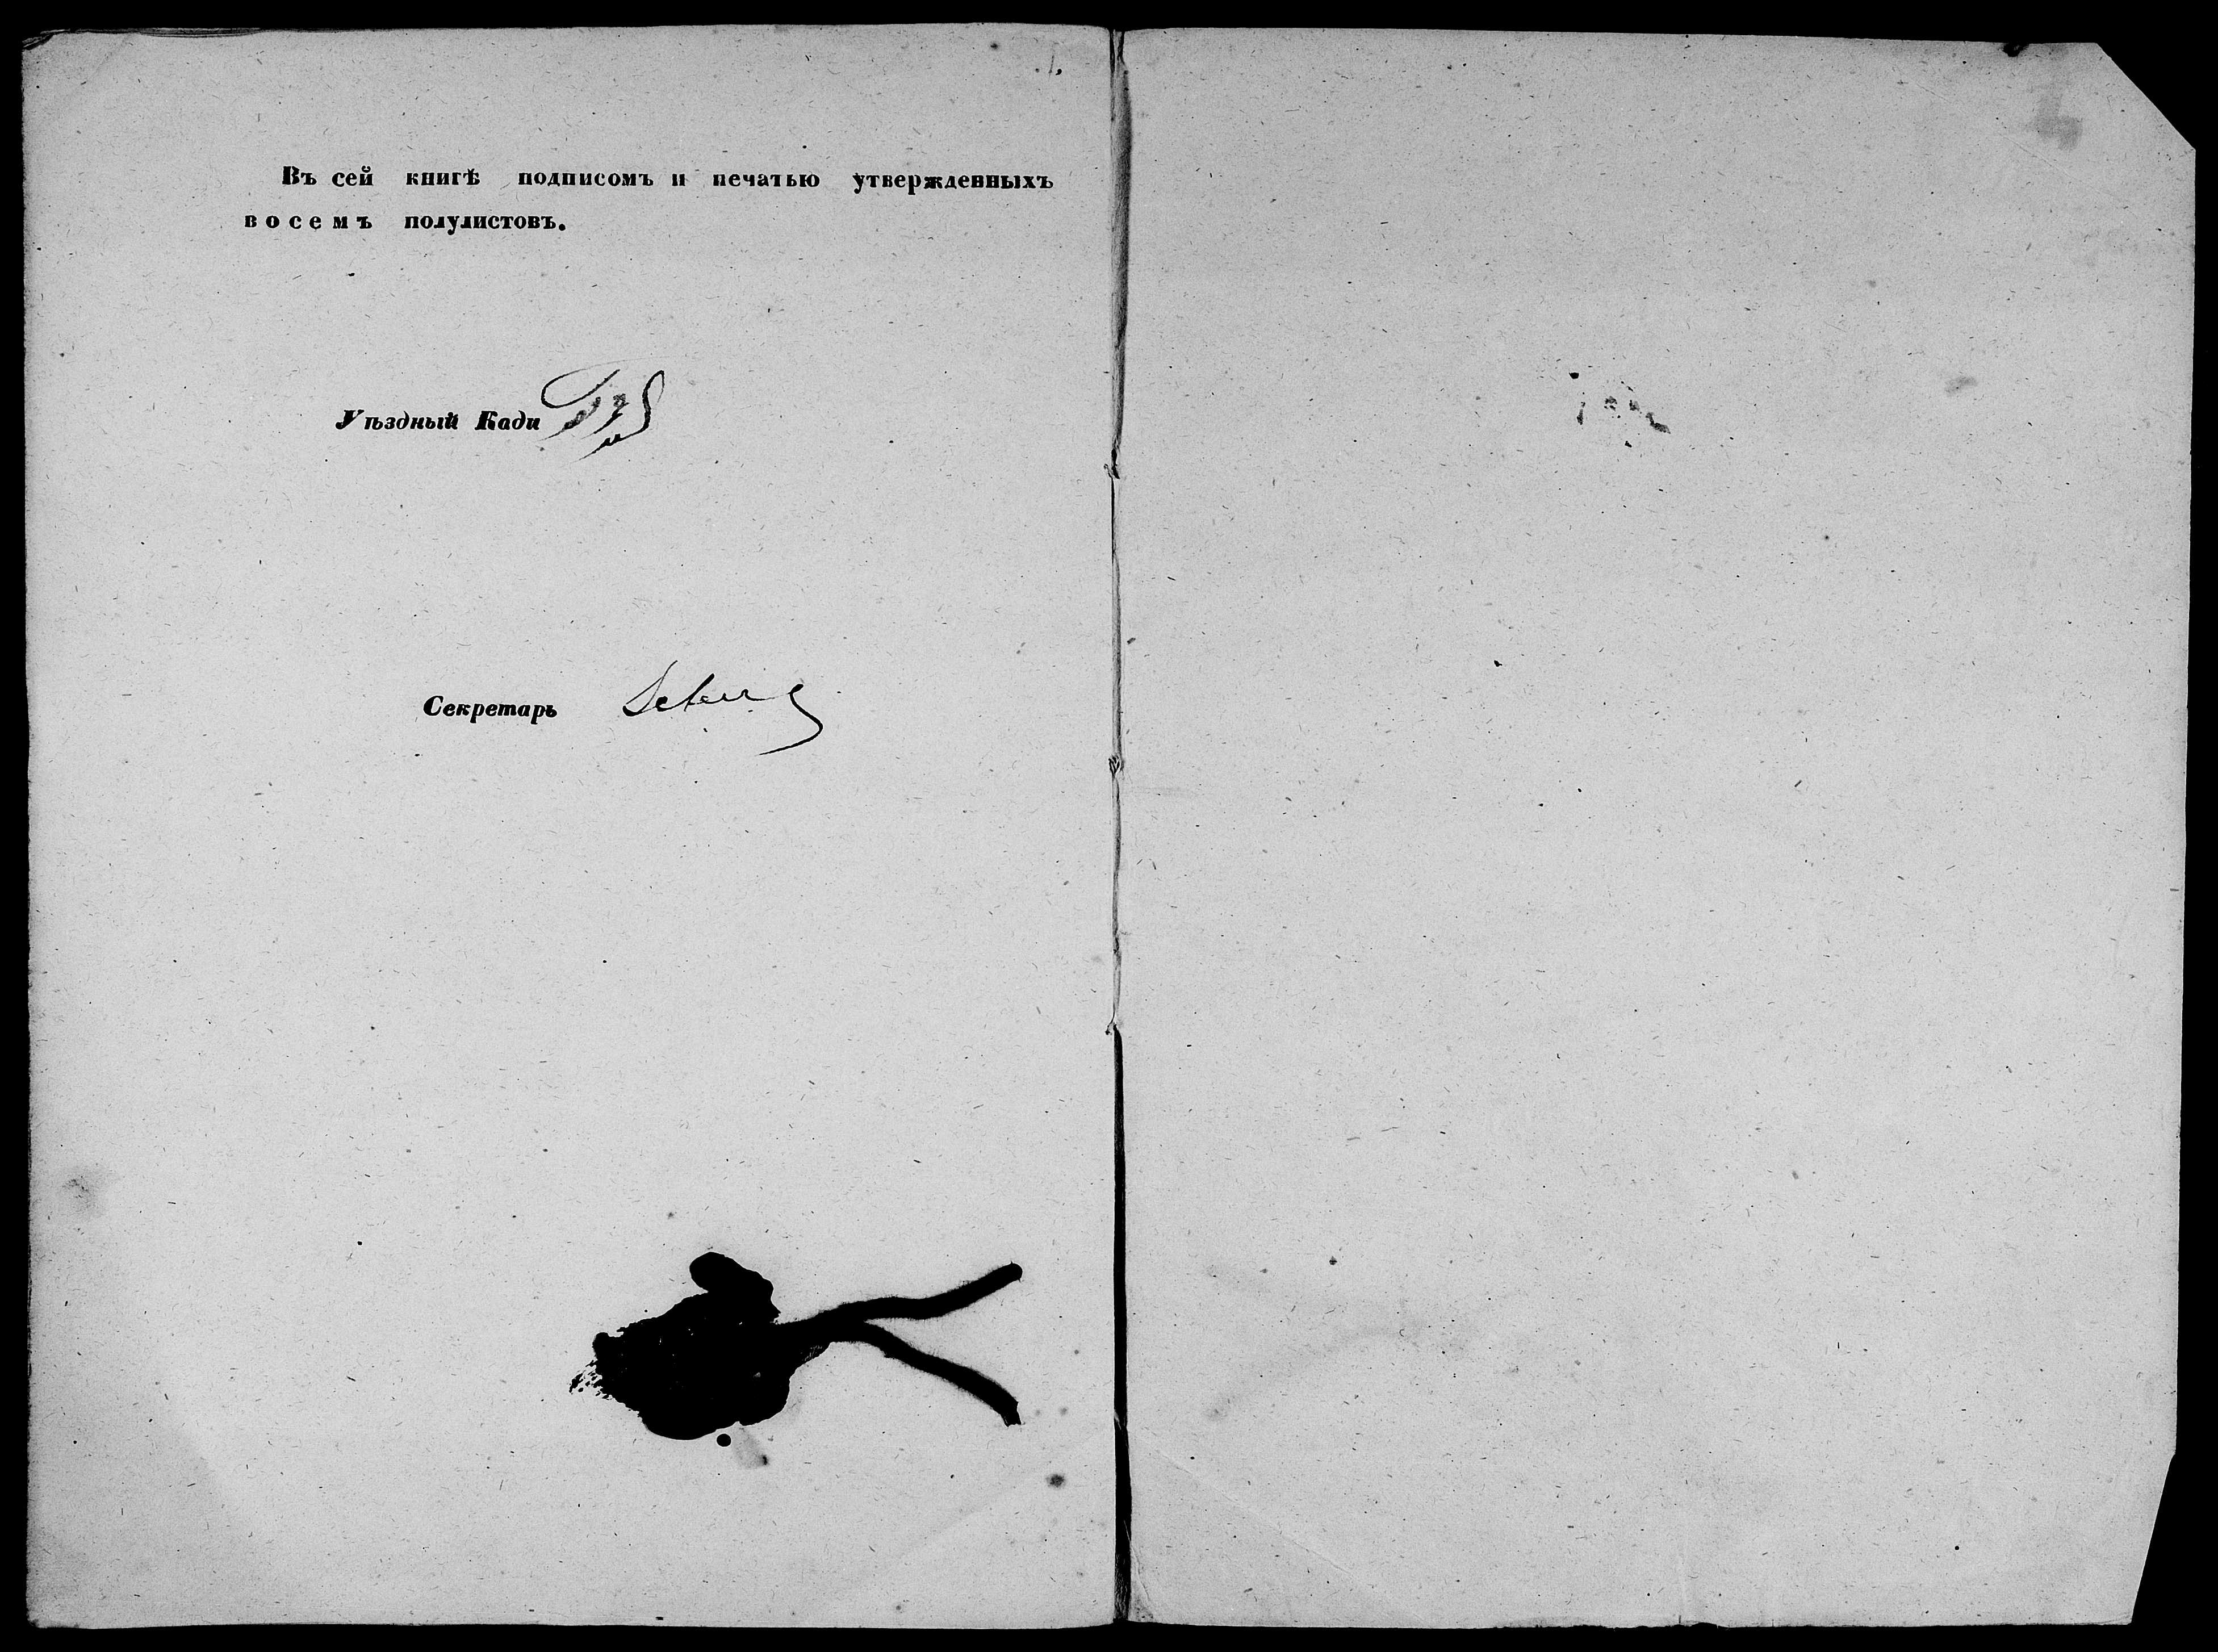 1.
Въ сей книгѣ подписомъ и печатью утвержденныхъ
восемъ полулистовъ.
Уѣздный Кади
Секретарь